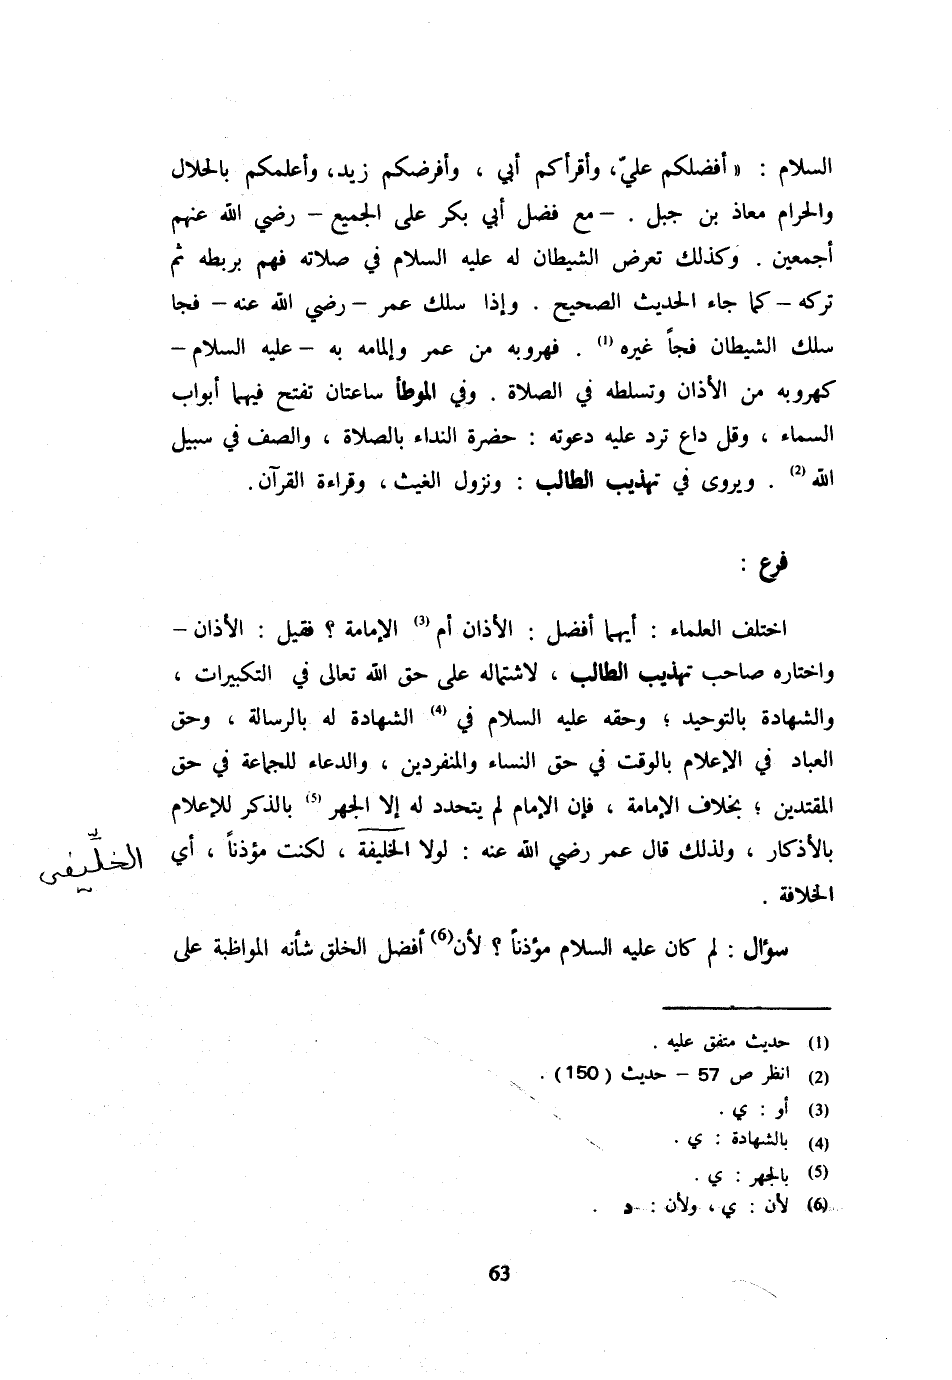 السلام : « أفضلكم عليّ، وأقرأكم أبي ، وأفرضكم زيد، وأعلمكم بالحلال
والحرام معاذ بن جبل . – مع فضل أبي بكر على الجميع – رضي الله عنهم
أجمعين . وكذلك تعرض الشيطان له عليه السلام في صلاته فهم بربطه ثم
تركه – كما جاء الحديث الصحيح . وإذا سلك عمر – رضي الله عنه – فجا
سلك الشيطان فجاً غيره (1) . فهروبه من عمر وإلمامه به – عليه السلام –
كهروبه من الأذان وتسلطه في الصلاة . وفي الموطأ ساعتان تفتح فيهما أبواب
السماء ، وقل داع ترد عليه دعوته : حضرة النداء بالصلاة ، والصف في سبيل
الله (2) . ويروى في تهذيب الطالب : ونزول الغيث ، وقراءة القرآن.
فرع :
اختلف العلماء : أيهما أفضل : الأذان أم (3) الإمامة ؟ فقيل : الأذان –
واختاره صاحب تهذيب الطالب ، لاشتماله على حق الله تعالى في التكبيرات ،
والشهادة بالتوحيد ؛ وحقه عليه السلام في (4) الشهادة له بالرسالة ، وحق
العباد في الإعلام بالوقت في حق النساء والمنفردين ، والدعاء للجماعة في حق
المقتدين ؛ بخلاف الإمامة ، فإن الإمام لم يتحدد له إلا الجهر (5) بالذكر للإعلام
بالأذكار ، ولذلك قال عمر رضي الله عنه : لولا الخليفة ، لكنت مؤذناً ، أي
الخِلِّيفى
الخلافة .
سؤال : لم كان عليه السلام مؤذناً ؟ لأن(6) أفضل الخلق شأنه المواظبة على
(1) حديث متفق عليه .
(2) انظر ص 57 – حديث (150) .
(3) أو : ي .
(4) بالشهادة : ي .
(5) بالجهر : ي .
(6) لأن : ي ، ولأن : د .
63